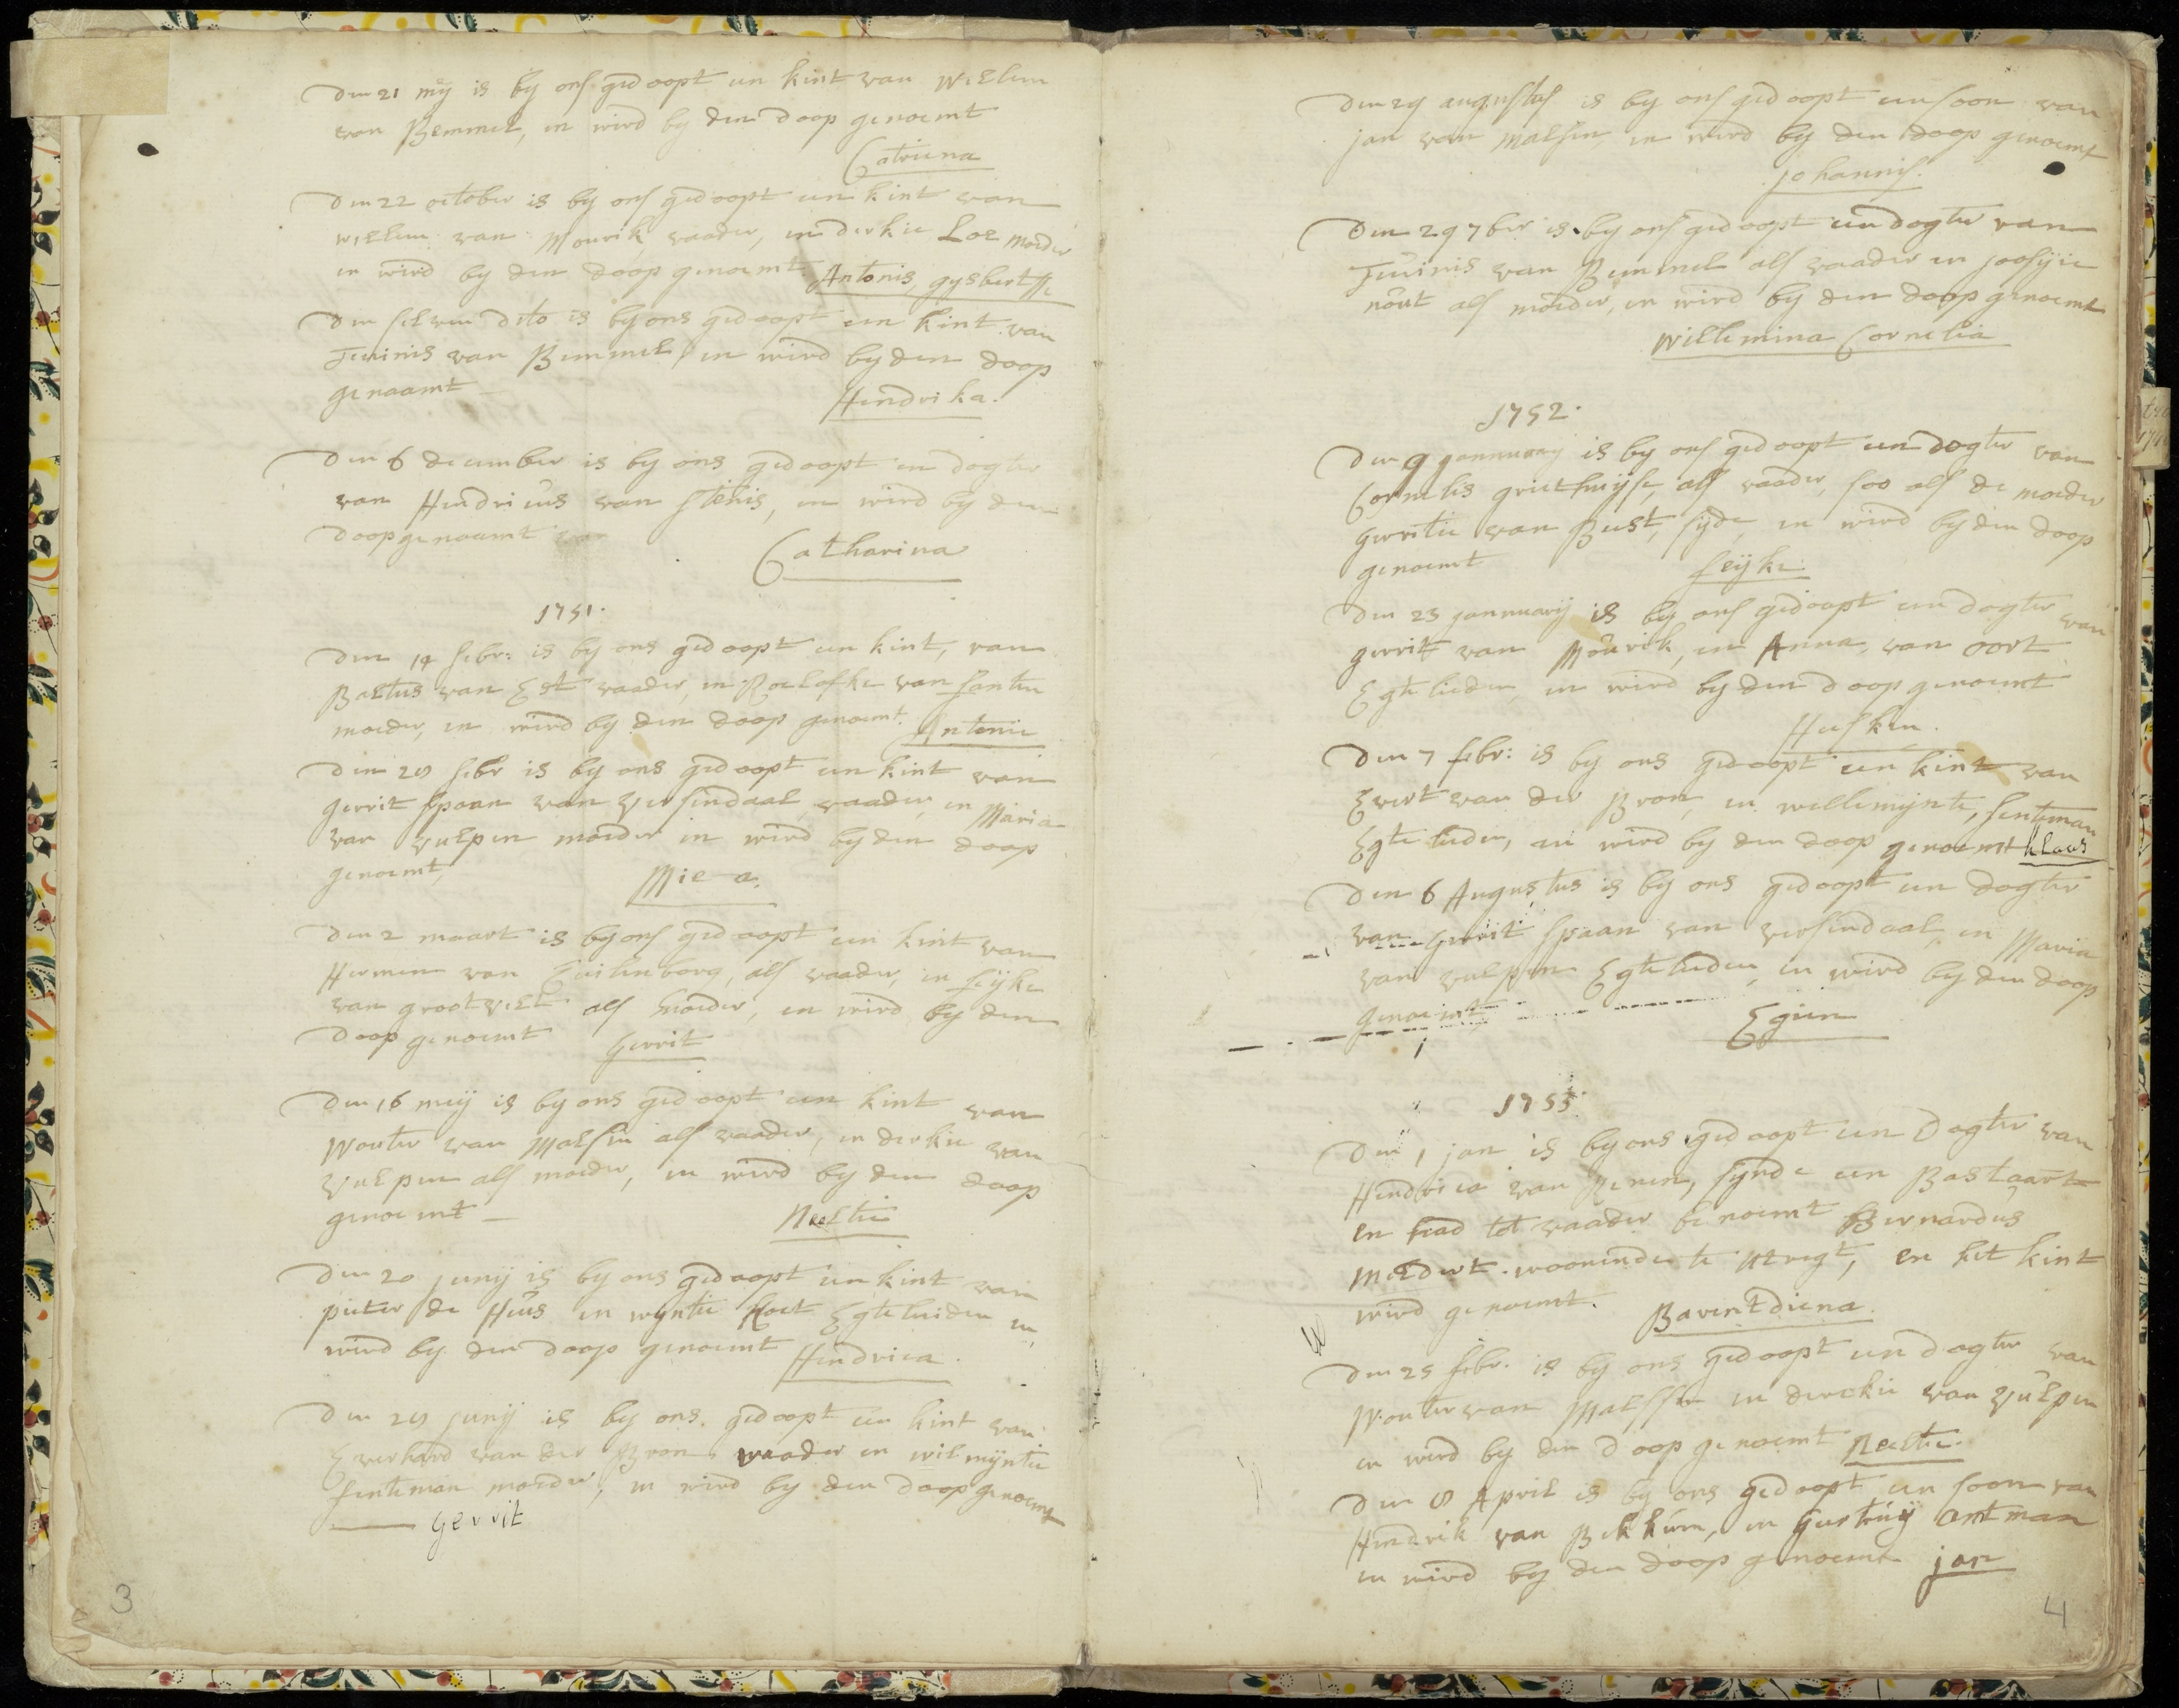 den 21 mey is by ons gedoopt een kint van Willem
van Bemmel, en wird by den doop genoemt
Catriena
den 22 october is by ons gedoopt een kint van
willem van Mourik vaader, en derkie Loe moeder
en wird by den doop genoemt Antonis, gysbert
den selven dito is by ons gedoopt een kint van
Teunis van Bemmel, en wird by den doop
genaamt Hendrika.
den 6 december is by ons gedoopt een dogter
van Hendricus van Stenis, en wird by den
doop genaamt
Catharina
1751.
den 14 febr: is by ons gedoopt een kint, van
Baltus van Est vaader, en Roelofke van santen
moeder, en wird by den doop genoemt. Antonie
den 28 febr is by ons gedoopt een kint van
gerrit spaan van versendaal vaader, en Maria
van vulpen moeder en wird by den doop
genoemt, Mie a.
den 2 maart is by ons gedoopt een kint van
Hermen van Cuilenborg, als vaader, en seyke
van grootvelt als moeder, en wird by den
doop genoemt Gerrit
den 16 meij is by ons gedoopt een kint van
Wouter van Malsen als vaader, en derkie van
vulpen als moeder, en wird by den doop
genoemt Neeltie
den 20 junij is by ons gedoopt een kint van
pieter de Heus en wyntie Egte luiden en
wird by den doop genoemt Hendrica.
den 28 junij is by ons. gedoopt een kint van
Everhard van der Bron, vaader en wilmijntie
senteman moeder, en wird by den doop genoemt
gerrit
3
den 29 augustus is by ons gedoopt een soon van
jan van Malsen, en wird by den doop genoemt
johannis.
den 29 7ber is by ons gedoopt een dogter van
Teunis van Bemmel als vaader en joosyie
nout als moeder, en wird by den doop genoemt
Willemina Cornelia
1752.
den 9 jannuary is by ons gedoopt een dogter van
Cornelis griethuyse, als vaader, soo als de moeder
gerritie van Bust, syde, en wird by den doop
genoemt seijke
den 23 jannuarij is by ons gedoopt een dogter van
gerrit van Mourik, en Anna, van oort
Egte lieden, en wird by den doop genoemt
Hesken.
den 7 febr: is by ons gedoopt een kint van
Evert van der Bron, en willemijnte, senteman
Egte luden, en wird by den doop genoemt klaas
den 6 Augustus is by ons gedoopt een dogter
van Gerrit spaan van versendaal, en Maria
van vulpen Egte luden, en wird by den doop
genoemt, Egien
1753.
den 1 jan is by ons gedoopt een Dogter van
Hendrica van Renen, synde een Bastaart
en had tot vaader benoemt Bernardus
Meldert. woonende te utregt, en het kint
wird genoemt. Barentdiena.
den 25 febr. is by ons gedoopt een dogter van
Wouter van Malssen en derckie van vulpen
en wird by den doop genoemt Neeltie.
den 8 April is by ons gedoopt een soon van
Hendrik van Bekkum, en geertruij antman
en wird by den doop genoemt jan
4